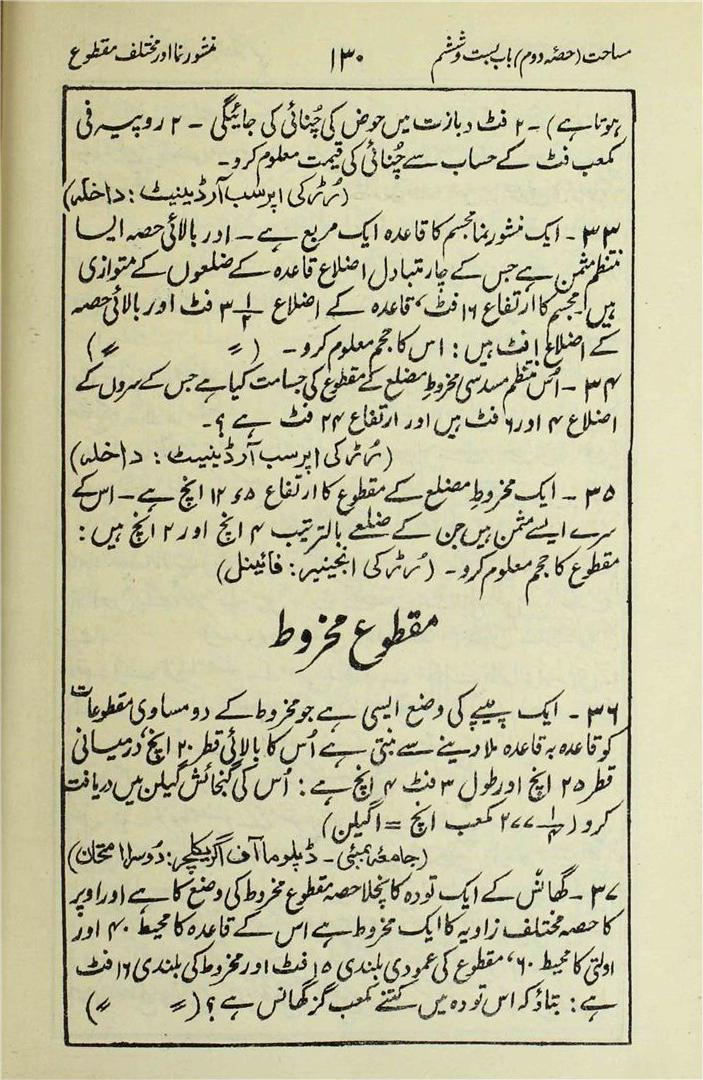 مساحت (حصہ دوم) باب بست و ششم ۱۳۰ منشور نما اور مختلف مقطوع
ہوتا ہے) ۔ ۲ فٹ دبازت میں حوض کی چُنائی کی جائیگی ۔ ۲ روپیہ فی
مکعب فٹ کے حساب سے چُنائی کی قیمت معلوم کرو ۔
(رُڑکی اپر سب آرڈینیٹ : داخلہ)
۳۳ ۔ ایک منشور نما مجسم کا قاعدہ ایک مربع ہے ۔ اور بالائی حصہ ایسا
منتظم مثمن ہے جس کے چار متبادل اضلاع قاعدہ کے ضلعوں کے متوازی
ہیں ۔ مجسم کا ارتفاع ۱۶ فٹ، قاعدہ کے اضلاع ۳ ۱/۲ فٹ اور بالائی حصہ
کے اضلاع ۱ فٹ ہیں : اس کا حجم معلوم کرو ۔ ( 〃 〃 )
۳۴ ۔ اُس منتظم مسدسی مخروطِ مضلع کے مقطوع کی جسامت کیا ہے جس کے سروں کے
اضلاع ۴ اور ۶ فٹ ہیں اور ارتفاع ۲۴ فٹ ہے ؟ ۔
(رُڑکی اپر سب آرڈینیٹ : داخلہ)
۳۵ ۔ ایک مخروطِ مضلع کے مقطوع کا ارتفاع ۱۲ء۵ اِنچ ہے ۔ اس کے
سرے ایسے مثمن ہیں جن کے ضلعے بالترتیب ۴ اِنچ اور ۲ اِنچ ہیں :
مقطوع کا حجم معلوم کرو ۔ (رُڑکی انجنیئر : فائینل)
مقطوع مخروط
۳۶ ۔ ایک پیپے کی وضع ایسی ہے جو مخروط کے دو مساوی مقطوعات
کو قاعدہ بہ قاعدہ ملا دینے سے بنتی ہے اُس کا بالائی قطر ۲۰ اِنچ، درمیانی
قطر ۲۵ اِنچ اور طول ۳ فٹ ۴ اِنچ ہے : اُس کی گنجائش گیلن میں دریافت
کرو (۲۷۷ ۱/۴ مکعب اِنچ = ۱ گیلن)
(جامعۂ بمبئی ۔ ڈپلوما آف اگریکلچر : دُوسرا امتحان)
۳۷ ۔ گھانس کے ایک تودہ کا نچلا حصہ مقطوع مخروط کی وضع کا ہے اور اوپر
کا حصہ مختلف زاویہ کا ایک مخروط ہے اس کے قاعدہ کا محیط ۴۰ اور
اولتی کا محیط ۶۰، مقطوع کی عمودی بلندی ۱۵ فٹ اور مخروط کی بلندی ۱۶ فٹ
ہے : بتاؤ کہ اس تودہ میں کتنے مکعب گز گھانس ہے ؟ ( 〃 〃 )